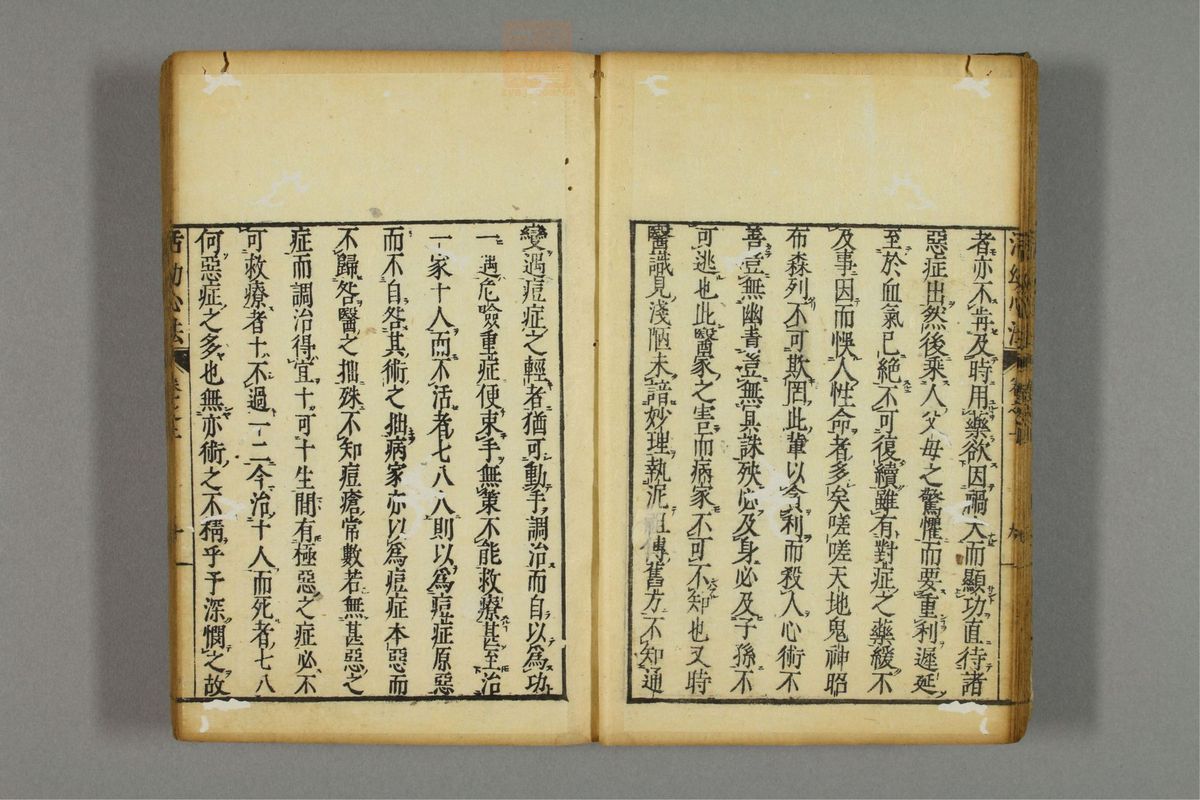 者亦不肯及時用藥欲因禍大而顯功直待諸
惡症出然後乘人父母之驚懼而要重利遲延
至於血氣已絕不可復續雖有對症之藥緩不
及事因而悞人性命者多矣嗟嗟天地鬼神昭
布森列不可欺罔此輩以貪利而殺人心術不
善豈無幽責豈無具誅殃必及身必及子孫不
可逃也此醫家之害而病家不可不知也又時
醫識見淺陋未諳妙理執泥祖傳舊方不知通
變遇痘症之輕者猶可動手調治而自以為功
一遇危險重症便束手無策不能救療甚至治
一家十人而不活者七八八則以為痘症原惡
而不自咎其術之拙病家亦以為痘症本惡而
不歸咎醫之拙殊不知痘瘡常數若無甚惡之
症而調治得宜十可十生間有極惡之症必不
可救療者十不過一二今治十人而死者七八
何惡症之多也無亦術之不精乎予深憫之故
活幼心法